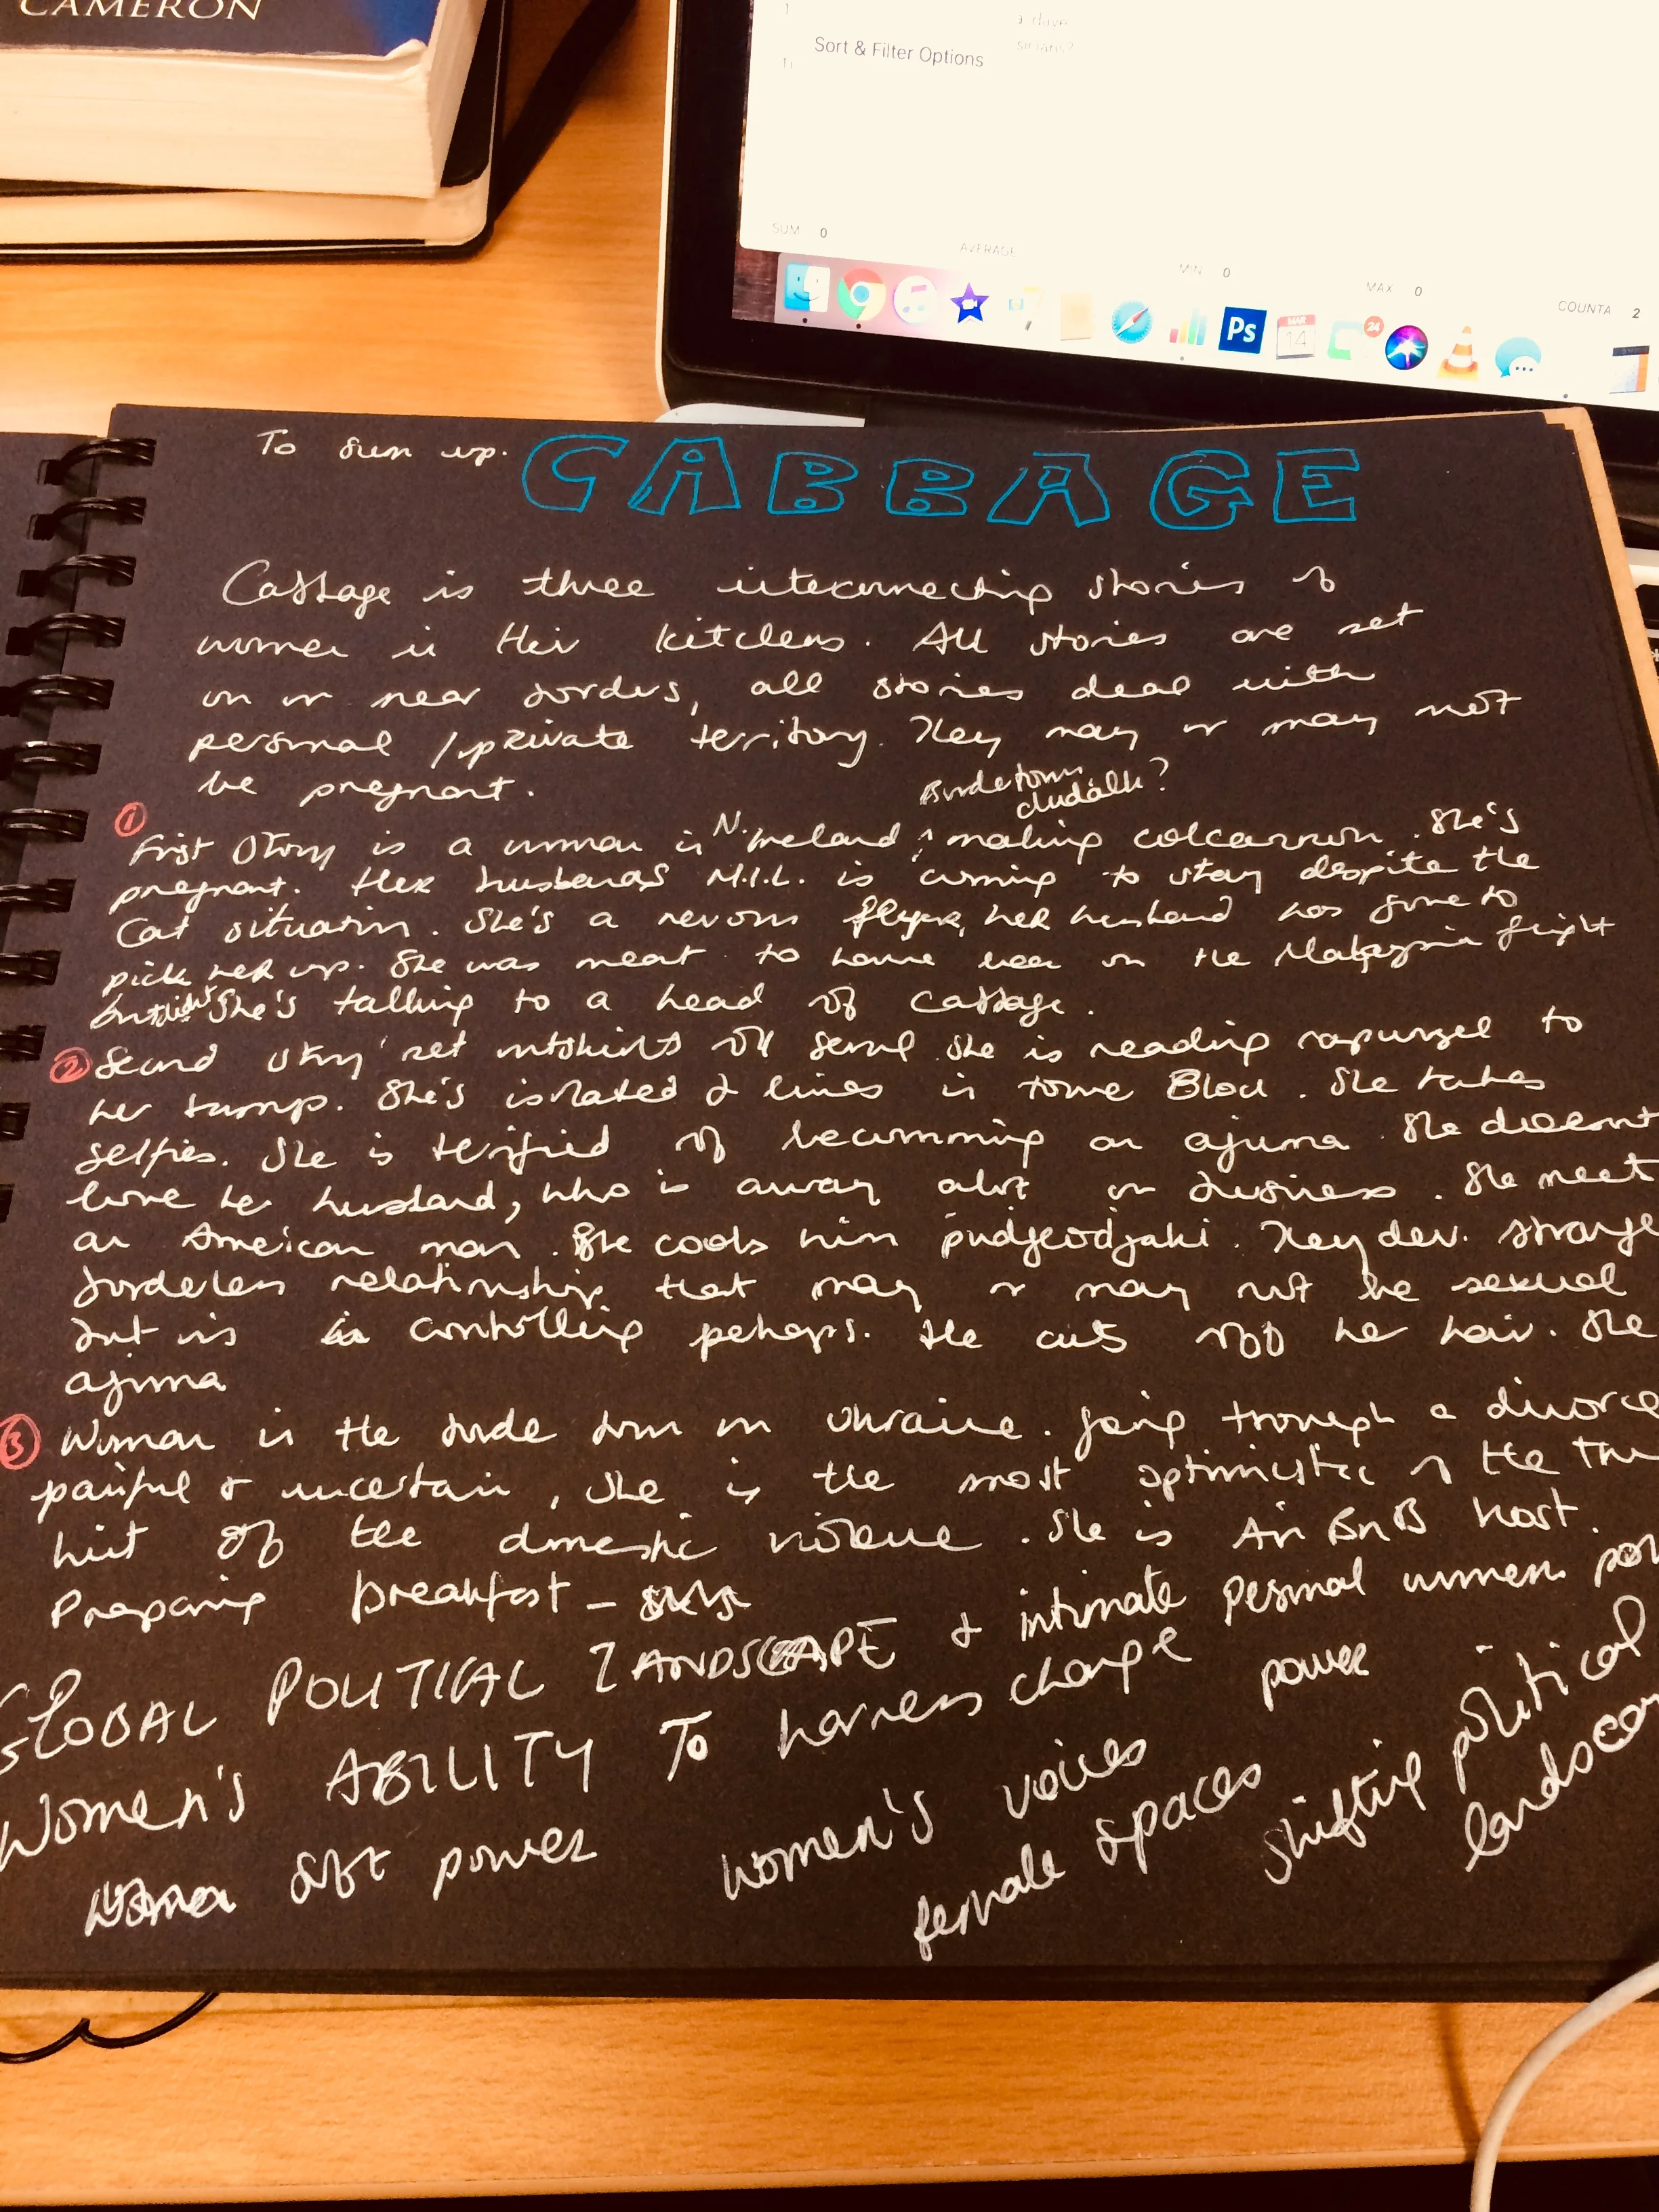 CAMERON
Sort & Filter Options
SUM 0
AVERAGE
MIN 0
MAX 0
COUNTA 2
Ps
MAR
14
24
To sum up. CABBAGE
Cabbage is three interconnecting stories of
women in their kitchens. All stories are set
on or near borders, all stories deal with
personal / private territory. They may or may not
be pregnant.
Bordertown
dudalk?
① First Story is a woman in N. Ireland, making colcannon. She's
pregnant. Her husbands M.I.L. is coming to stay despite the
Cat situation. She's a nervous flyer, her husband has gone to
pick her up. She was meant to have been on the Malaysia flight
but didn't She's talking to a head of cabbage.
② Second story set outskirts of Seoul she is reading rapunzel to
her bump. She's isolated & lives in tower Block. She takes
selfies. She is terrified of becomming an ajuma. She doesnt
love her husband, who is away alot on business. She meet
an American man. She cooks him pudgeodjaki. They dev. strange
borderless relationship that may or may not be sexual
but is controlling perhaps. He cuts off her hair. She
ajuma
③ Woman in the border town in Ukraine. Going through a divorce
painful & uncertain, she is the most optimistic of the
hint of the domestic violence. She is Air BnB host.
Preparing breakfast -
GLOBAL POLITICAL LANDSCAPE & intimate personal womens
Women's ABILITY To harness change power
women soft power women's voices
female spaces shifting political